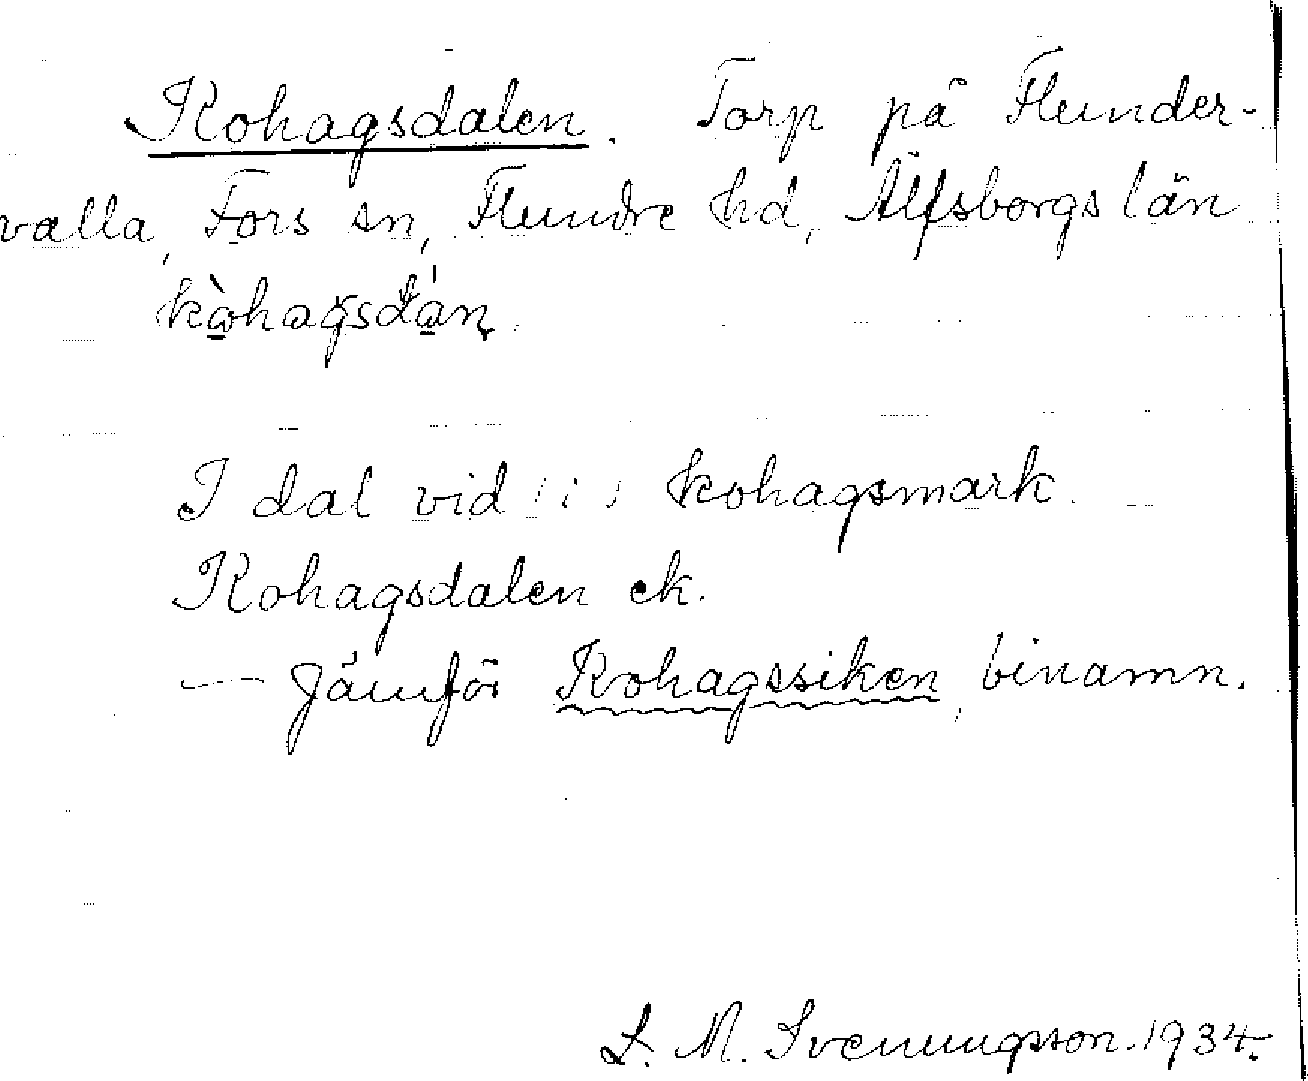 Kohagsdalen. Torp på Flunder-
valla, Fors sn, Flundre hd, Älfsborgs län
kòhagsdán.
I dal vid kohagsmark.
Kohagsdalen ek.
— Jämför Kohagssiken, binamn.
L. M. Svenungsson. 1934.